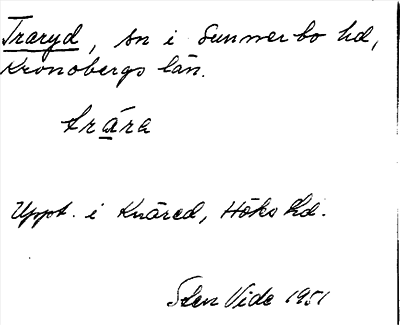 Traryd, sn i Sunnerbo hd,
Kronobergs län.
trära
Uppt. i Knäred, Höks hd.
Sten Vide 1951